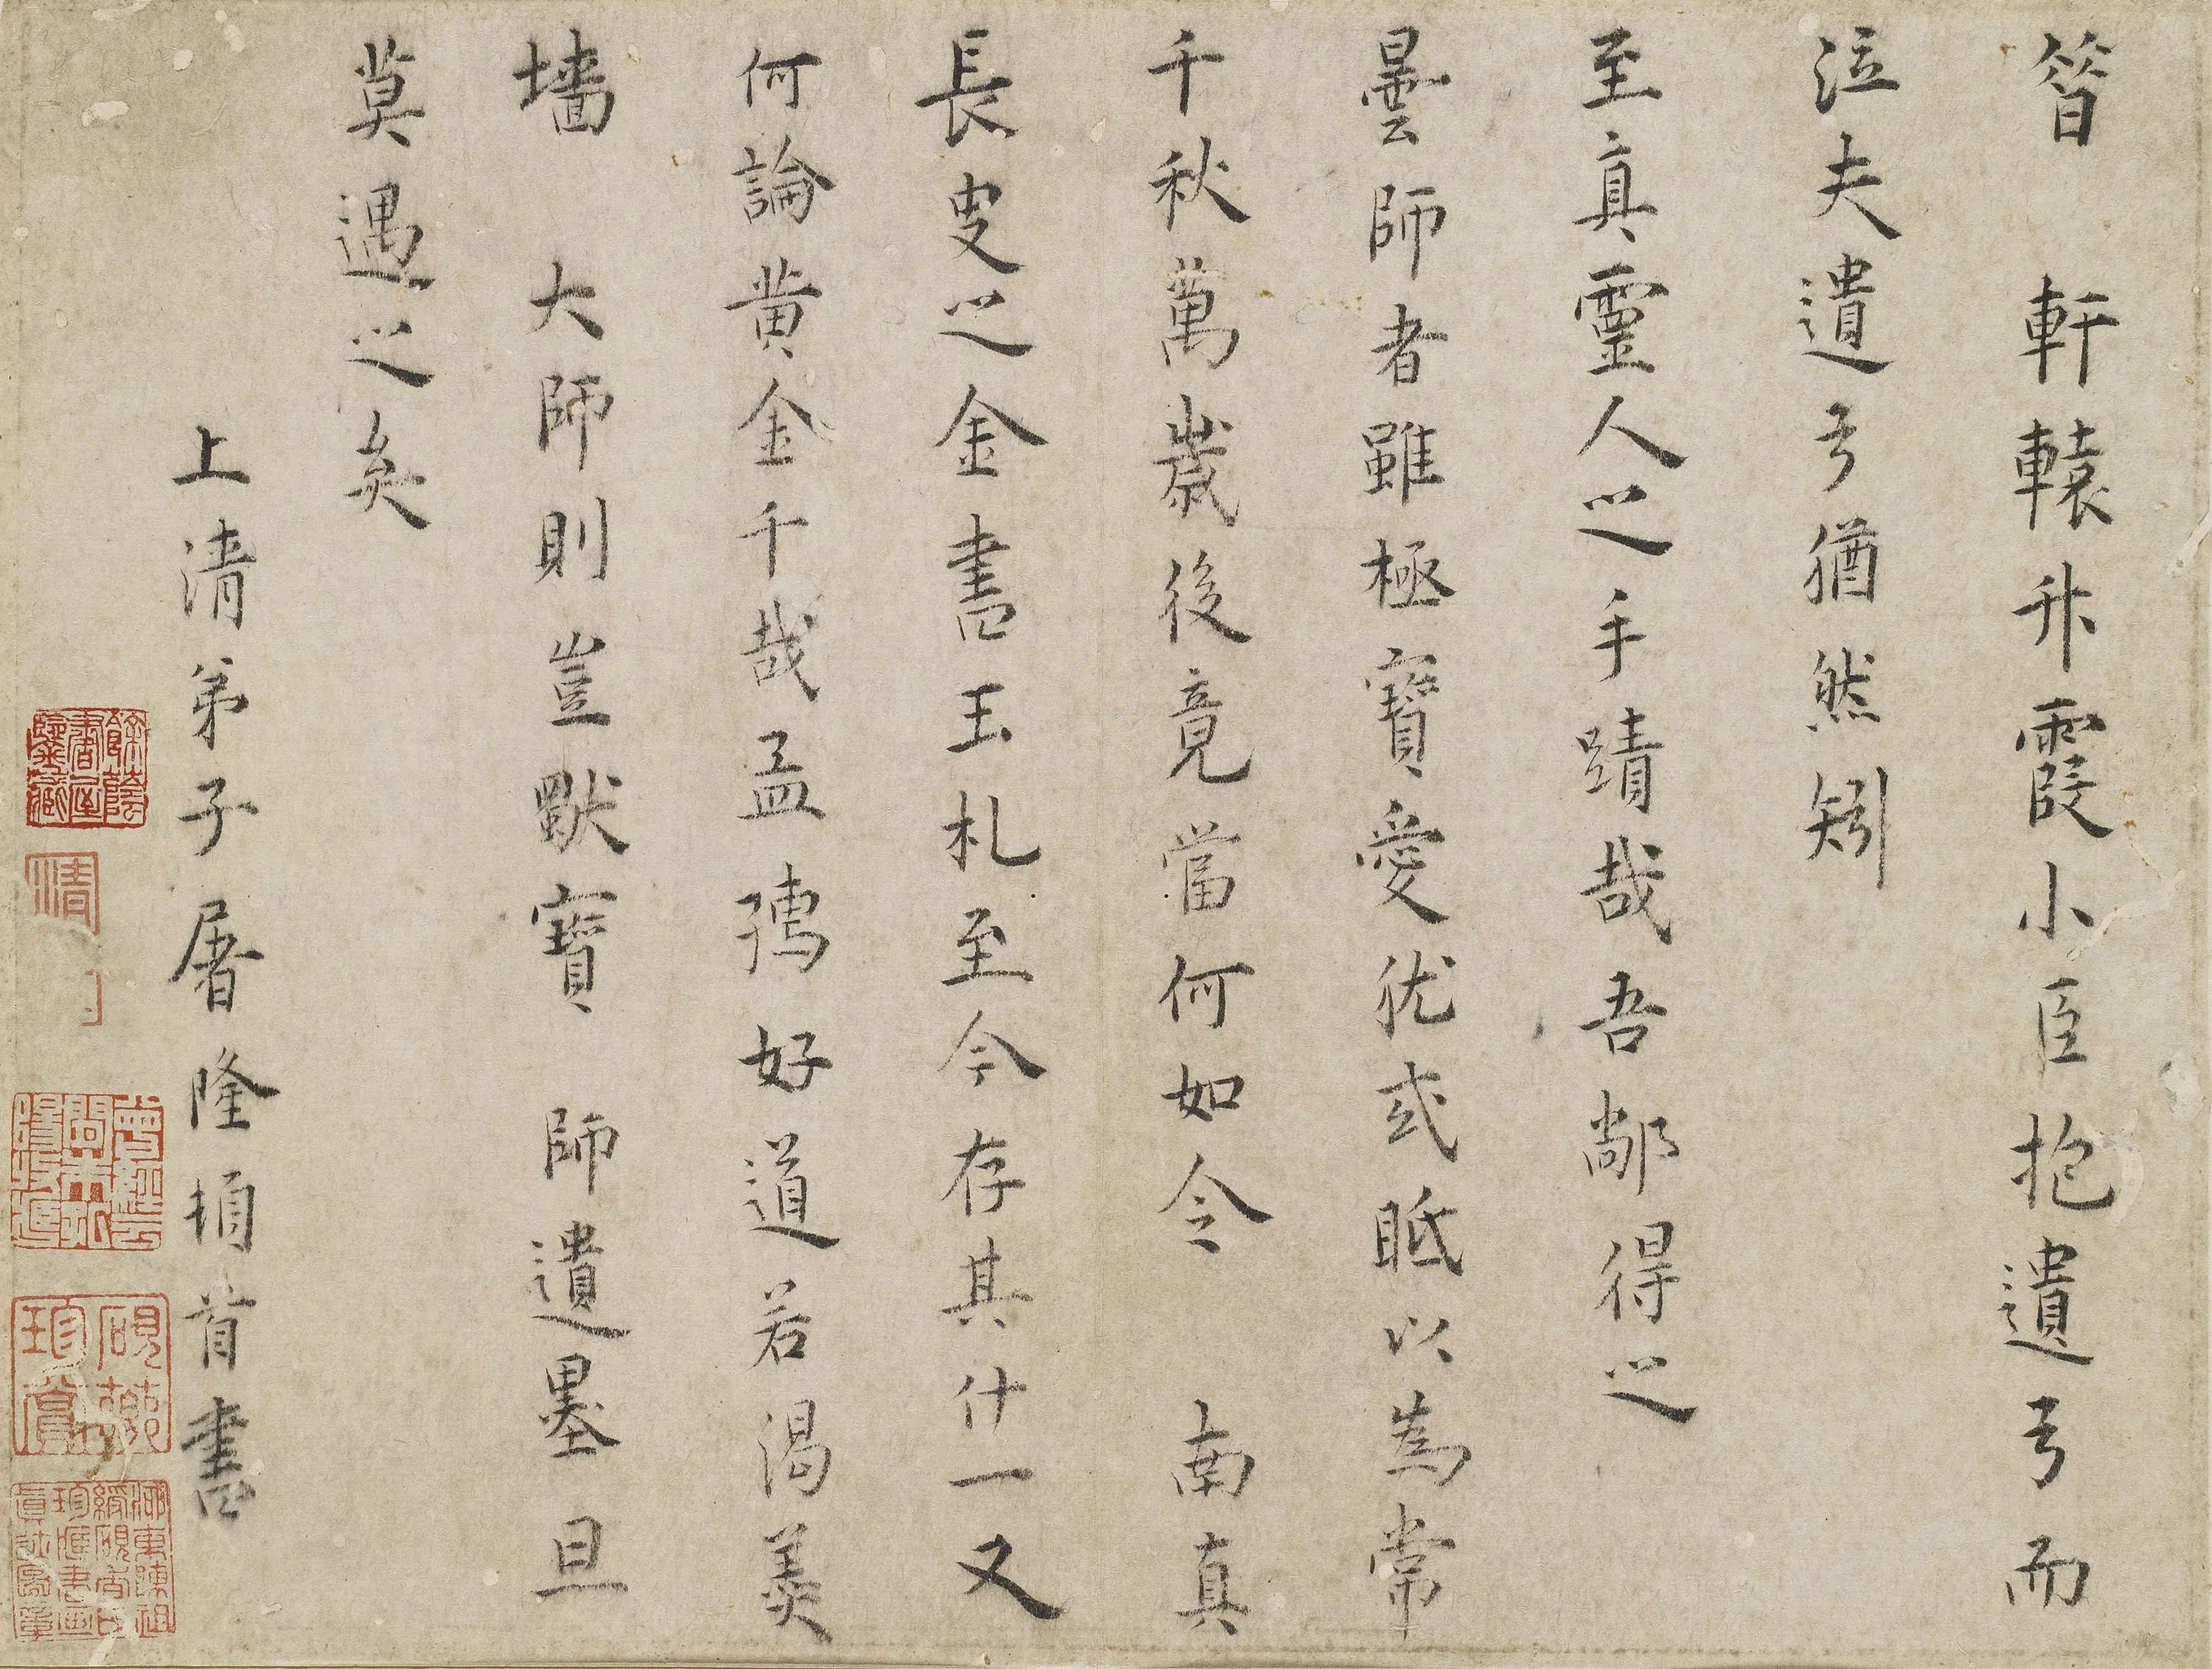 昔 軒轅升霞小臣抱遺弓而
泣夫遺弓猶然矧
至真靈人之手蹟哉吾鄙得之
曇師者雖極寶愛犹或眡以為常
千秋萬歲後竟當何如今 南真
長史之金書玉札至今存其什一又
何論黃金千哉孟孺好道若渴羹
墻 大師則豈獨寶 師遺墨旦
莫遇之矣
上清弟子屠隆頓首書